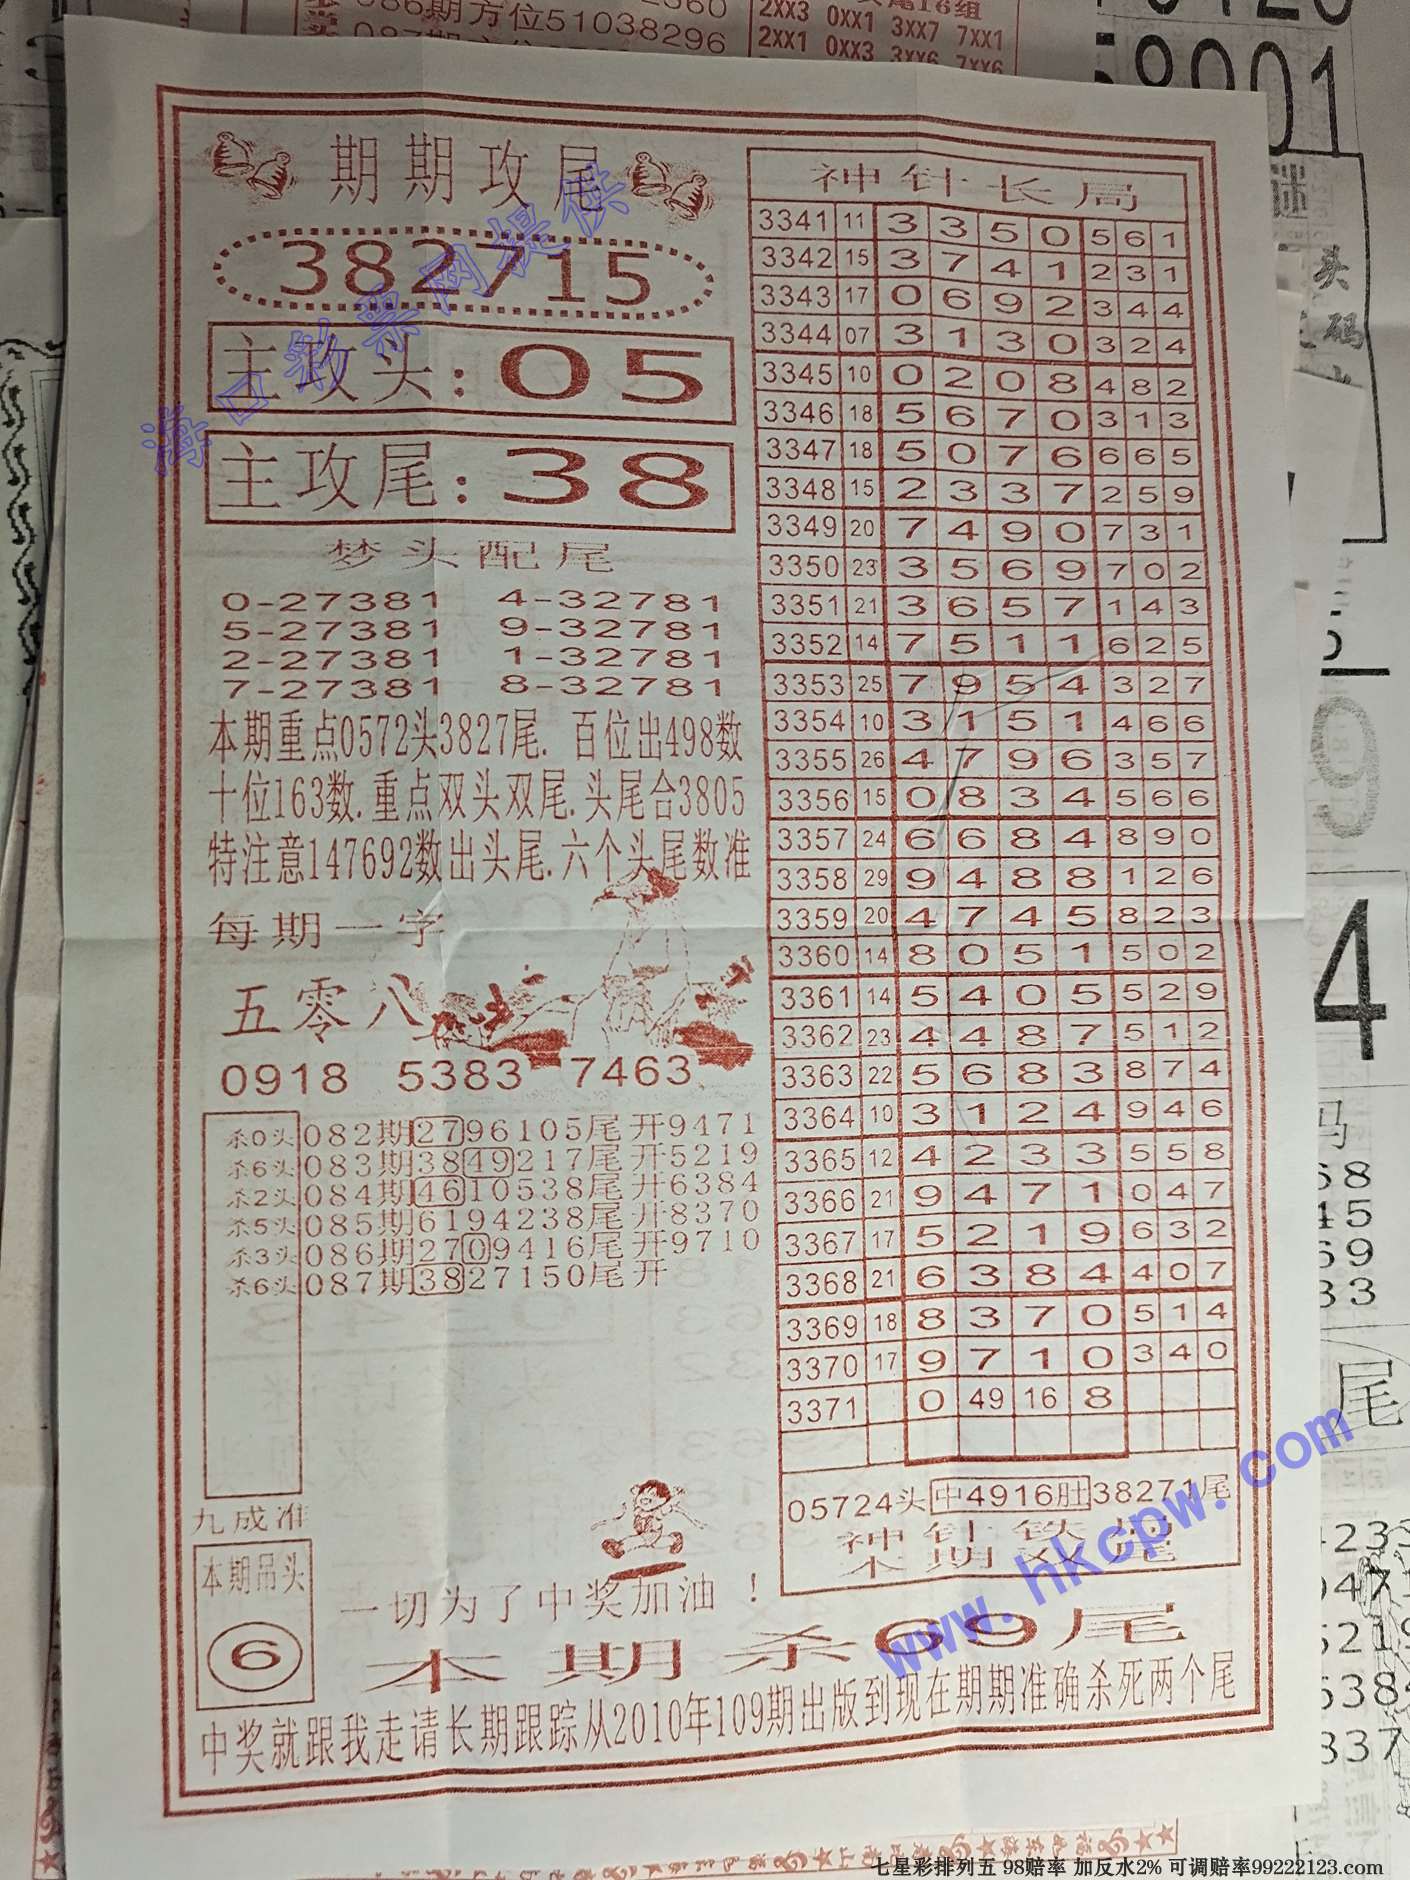 期期攻尾
382715
主攻头:05
主攻尾:38
梦头配尾
0-27381 4-32781
5-27381 9-32781
2-27381 1-32781
7-27381 8-32781
本期重点0572头3827尾. 百位出498数
十位163数.重点双头双尾.头尾合3805
特注意147692数出头尾.六个头尾数准
每期一字
五零八
0918 5383 7463
杀0头 082期2796105尾开9471
杀6头 083期3849217尾开5219
杀2头 084期4610538尾开6384
杀5头 085期6194238尾开8370
杀3头 086期2709416尾开9710
杀6头 087期3827150尾开
九成准
本期吊头
6
一切为了中奖加油！
神针长局
3341 11 3 3 5 0 5 6 1
3342 15 3 7 4 1 2 3 1
3343 17 0 6 9 2 3 4 4
3344 07 3 1 3 0 3 2 4
3345 10 0 2 0 8 4 8 2
3346 18 5 6 7 0 3 1 3
3347 18 5 0 7 6 6 6 5
3348 15 2 3 3 7 2 5 9
3349 20 7 4 9 0 7 3 1
3350 23 3 5 6 9 7 0 2
3351 21 3 6 5 7 1 4 3
3352 14 7 5 1 1 6 2 5
3353 25 7 9 5 4 3 2 7
3354 10 3 1 5 1 4 6 6
3355 26 4 7 9 6 3 5 7
3356 15 0 8 3 4 5 6 6
3357 24 6 6 8 4 8 9 0
3358 29 9 4 8 8 1 2 6
3359 20 4 7 4 5 8 2 3
3360 14 8 0 5 1 5 0 2
3361 14 5 4 0 5 5 2 9
3362 23 4 4 8 7 5 1 2
3363 22 5 6 8 3 8 7 4
3364 10 3 1 2 4 9 4 6
3365 12 4 2 3 3 5 5 8
3366 21 9 4 7 1 0 4 7
3367 17 5 2 1 9 6 3 2
3368 21 6 3 8 4 4 0 7
3369 18 8 3 7 0 5 1 4
3370 17 9 7 1 0 3 4 0
3371 0 49 16 8
05724头中4916肚38271尾
神针铁局
本期双尾
本期杀69尾
中奖就跟我走请长期跟踪从2010年109期出版到现在期期准确杀死两个尾
海口彩票网提供
www.hkcpw.com
086期方位51038296
2XX3 0XX1 3XX7 7XX1
2XX1 0XX3 3XX6 7XX6
七星彩排列五 98赔率 加反水2% 可调赔率99222123.com